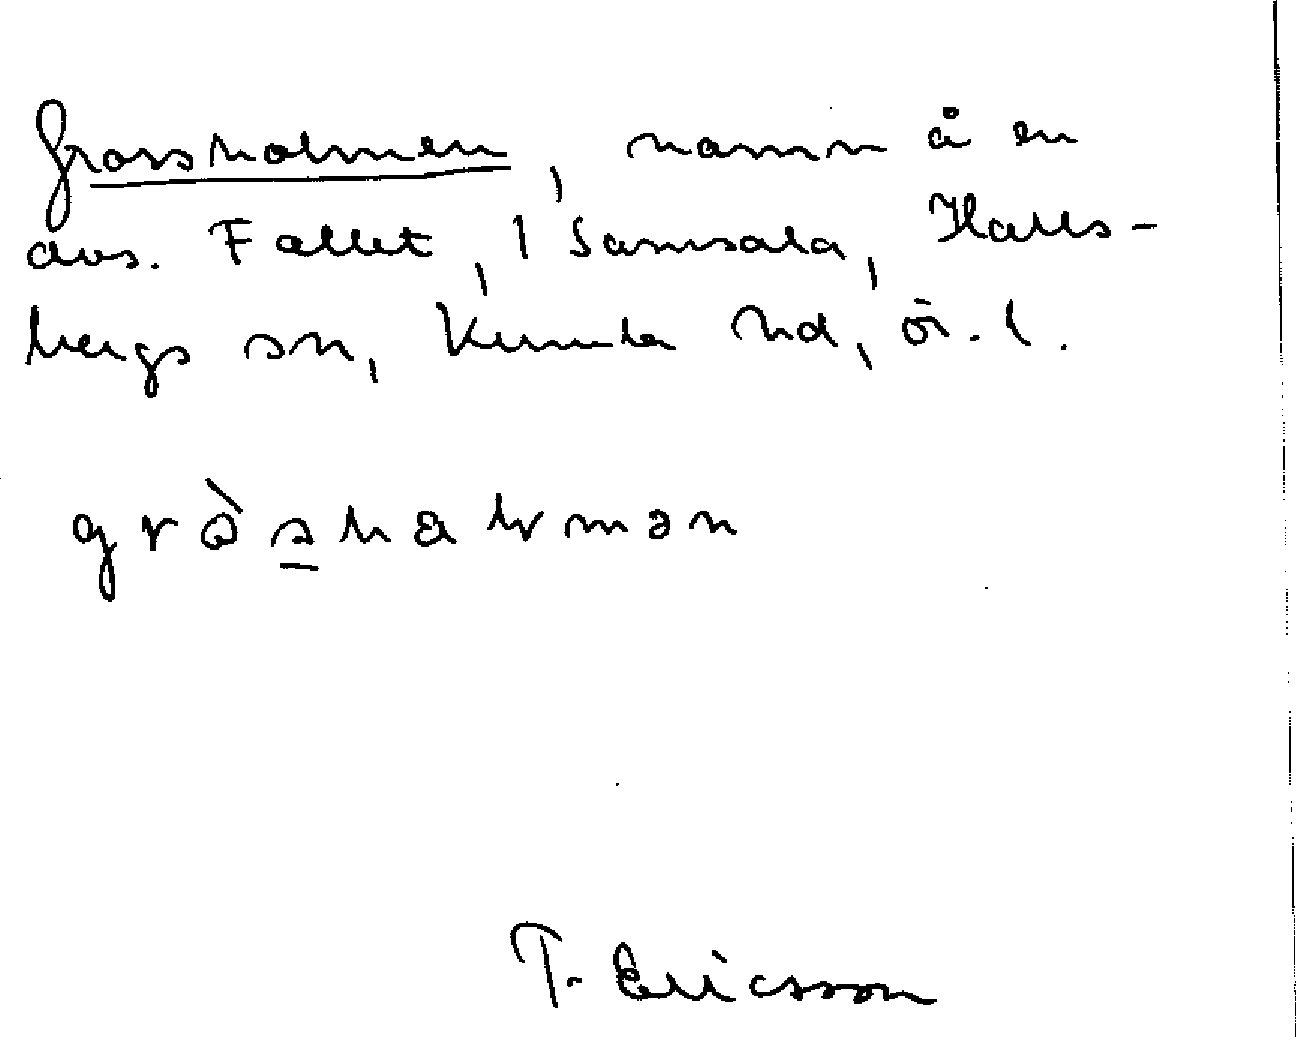 Grossholmen, namn å en
avs. Fallet, i Samsala, Halls-
bergs sn, Kumla hd, ör. l.
grò̀shalmən
T. Ericsson